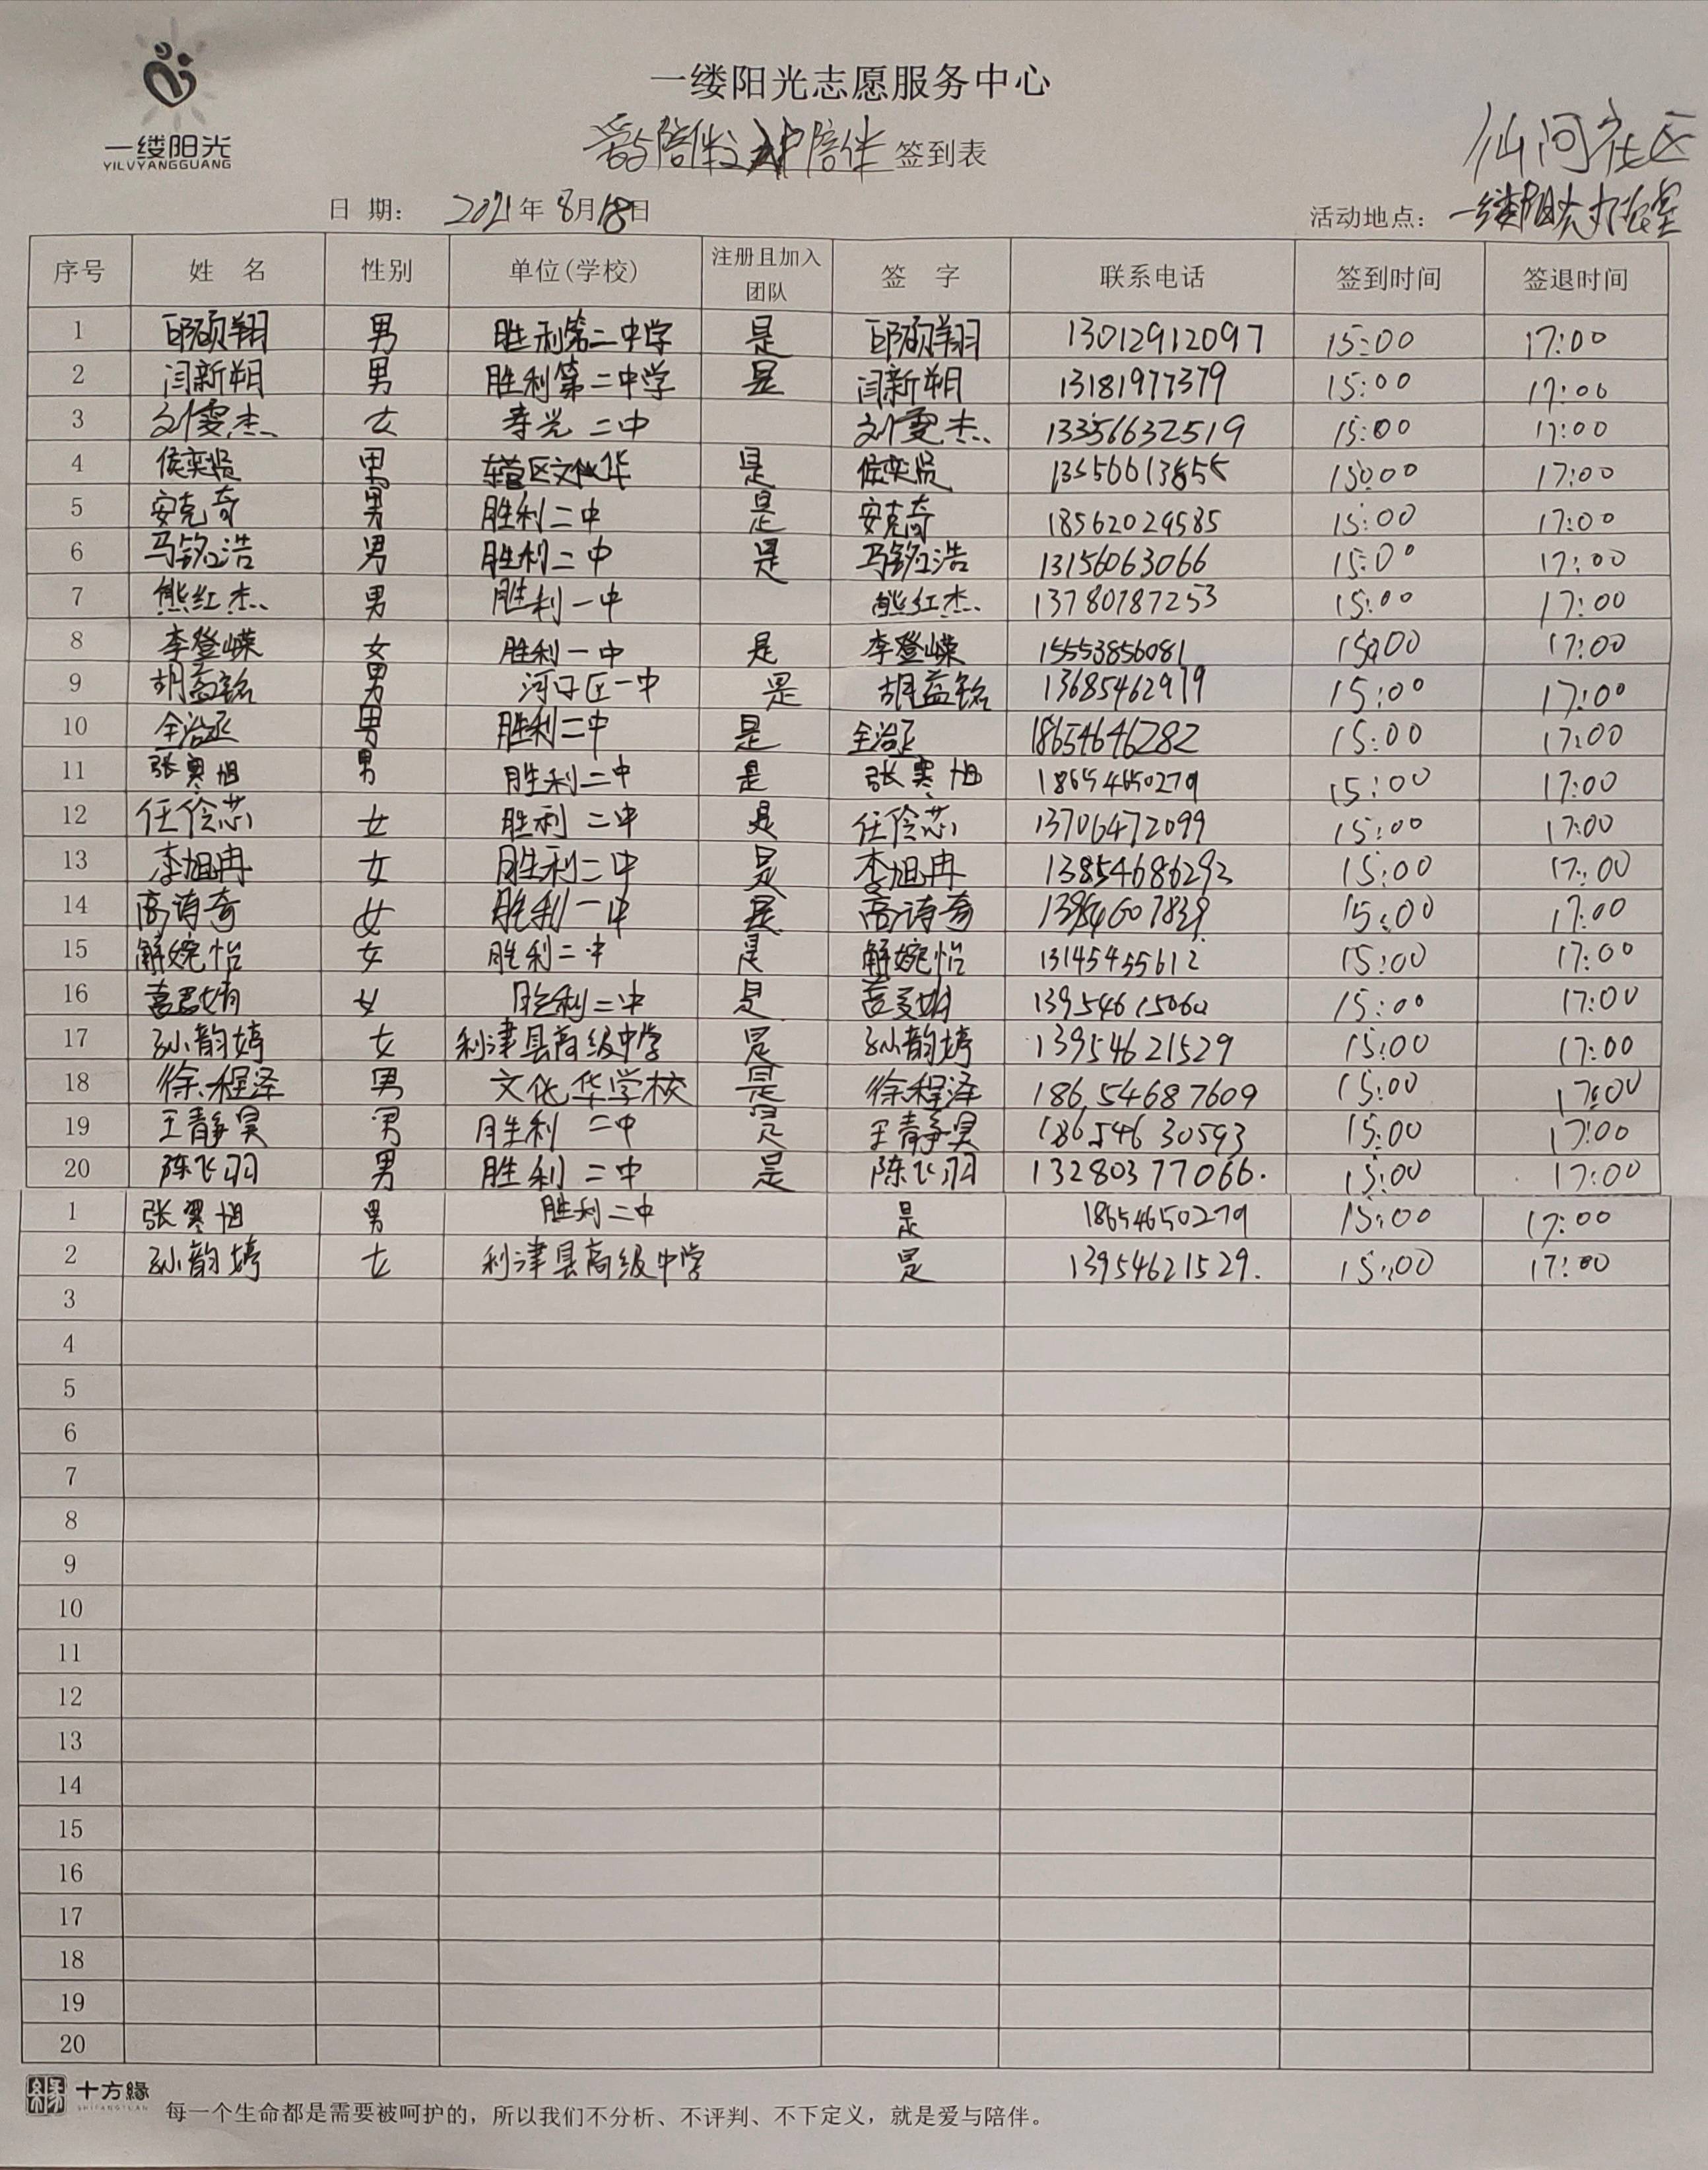 一缕阳光
YILVYANGGUANG
一缕阳光志愿服务中心
爱与陪伴 陪伴 签到表
仙河社区
日 期： 2021年8月18日
活动地点： 一缕阳光办公室
序号 姓 名 性别 单位(学校) 注册且加入团队 签 字 联系电话 签到时间 签退时间
1 邱硕翔 男 胜利第二中学 是 邱硕翔 13012912097 15:00 17:00
2 闫新朔 男 胜利第二中学 是 闫新朔 13181977379 15:00 17:00
3 刘雯杰 女 寿光二中 刘雯杰 13356632519 15:00 17:00
4 侯奕贤 男 东营区文化华 是 侯奕贤 15:00 17:00
5 安克奇 男 胜利二中 是 安克奇 18562029585 15:00 17:00
6 马铭浩 男 胜利二中 是 马铭浩 13156063066 15:00 17:00
7 熊红杰 男 胜利一中 熊红杰 13780787253 15:00 17:00
8 李登嵘 女 胜利一中 是 李登嵘 15553856081 15:00 17:00
9 胡益铭 男 河口区一中 是 胡益铭 13685462979 15:00 17:00
10 全治丞 男 胜利二中 是 全治丞 18654646282 15:00 17:00
11 张寒旭 男 胜利二中 是 张寒旭 18654650279 15:00 17:00
12 任伶芯 女 胜利二中 是 任伶芯 13706472099 15:00 17:00
13 李旭冉 女 胜利二中 是 李旭冉 13854686292 15:00 17:00
14 高诗奇 女 胜利一中 是 高诗奇 15:00 17:00
15 解婉怡 女 胜利二中 是 解婉怡 13145455612 15:00 17:00
16 女 胜利二中 是 13954615060 15:00 17:00
17 孙韵婷 女 利津县高级中学 是 孙韵婷 13954621529 15:00 17:00
18 徐程泽 男 文化华学校 是 徐程泽 18654687609 15:00 17:00
19 王静昊 男 胜利二中 是 王静昊 18654630593 15:00 17:00
20 陈飞羽 男 胜利二中 是 陈飞羽 13280377066. 15:00 17:00
1 张寒旭 男 胜利二中 是 18654650279 15:00 17:00
2 孙韵婷 女 利津县高级中学 是 13954621529. 15:00 17:00
3
4
5
6
7
8
9
10
11
12
13
14
15
16
17
18
19
20
十方緣
SHIFANGYUAN
每一个生命都是需要被呵护的，所以我们不分析、不评判、不下定义，就是爱与陪伴。